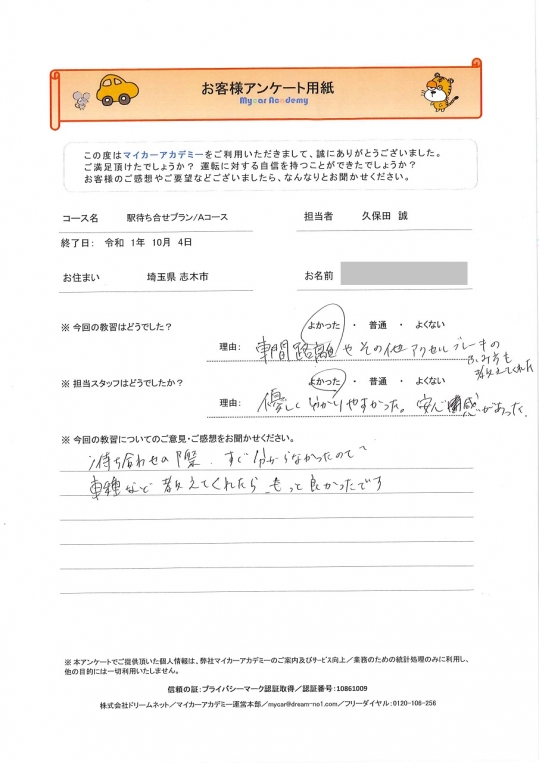 お客様アンケート用紙
Mycar Academy
この度はマイカーアカデミーをご利用いただきまして、誠にありがとうございました。
ご満足頂けたでしょうか？ 運転に対する自信を持つことができたでしょうか？
お客様のご感想やご要望などございましたら、なんなりとお聞かせください。
コース名 駅待ち合せプラン/Aコース 担当者 久保田 誠
終了日: 令和 1年 10月 4日
お住まい 埼玉県 志木市 お名前
※ 今回の教習はどうでした？ よかった ・ 普通 ・ よくない
理由: 車間距離やその他アクセルブレーキの
ふみ方も
教えてくれた
※ 担当スタッフはどうでしたか？ よかった ・ 普通 ・ よくない
理由: 優しく分かりやすかった。安心感があった。
※ 今回の教習についてのご意見・ご感想をお聞かせください。
待ち合わせの際、すぐ分からなかったので
車種など教えてくれたら、もっと良かったです
※ 本アンケートでご提供頂いた個人情報は、弊社マイカーアカデミーのご案内及びサービス向上／業務のための統計処理のみに利用し、
他の目的には一切利用いたしません。
信頼の証:プライバシーマーク認証取得／認証番号:10861009
株式会社ドリームネット／マイカーアカデミー運営本部／mycar@dream-no1.com／フリーダイヤル:0120-106-256